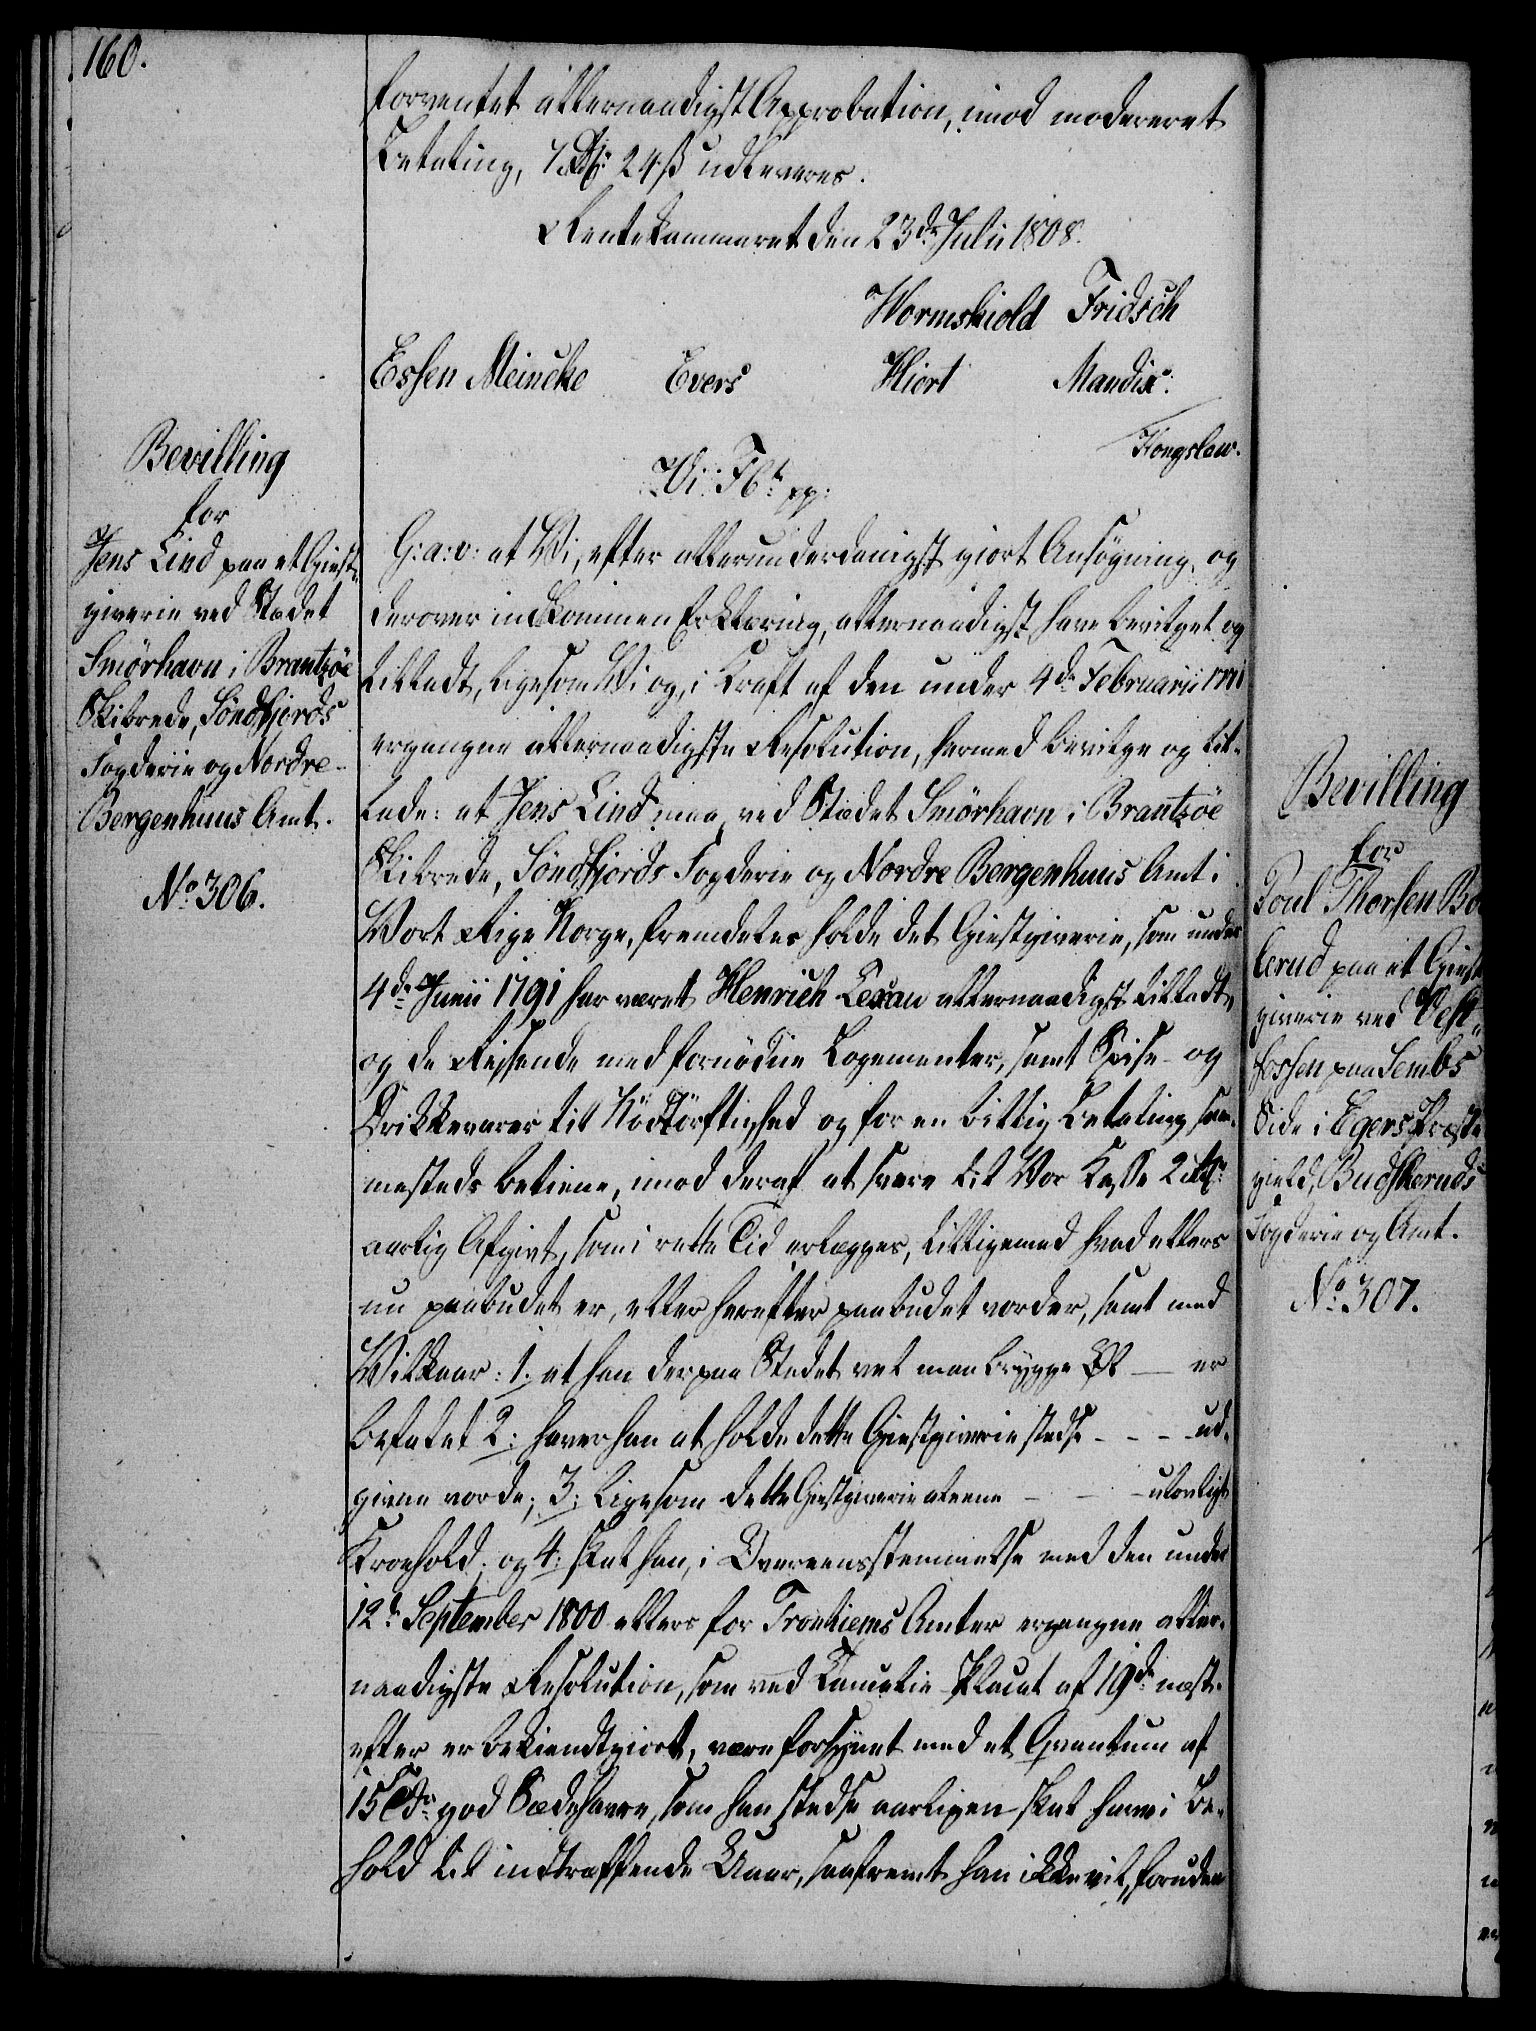 160.
forventet allernaadigst Approbation, imod modereret
Betaling, 7 Rd: 24 ß udleveres.
Rentekammeret den 23de Julii 1808.
Wormskiold Fridsch
Essen Meincke Evers Hiort Mandix.
Kongslew.
Bevilling
for
Jens Lind paa et Giest-
giverie ved Stædet
Smörhavn i Brantzöe
Skibrede, Söndfjords
Fogderie og Nordre-
Bergenhuus Amt.
No. 306.
Vi: F6te pp:
G: a: v: at Vi, efter allerunderdanigst giort Ansögning, og
derover indkommen Erklæring, allernaadigst have bevilget og
tilladt, ligesom Vi og, i Kraft af den under 4de Februarii 1771
ergangne allernaadigste Resolution, hermed bevilge og til-
lade: at Jens Lind maa, ved Stædet Smörhavn i Brantzöe
Skibrede, Söndfjords Fogderie og Nordre Bergenhuus Amt i
Vort Rige Norge, fremdeles holde det Giestgiverie, som under
4de Junii 1791 har været Henrich Lexau allernaadigst tilladt,
og de Reisende med fornödne Logementer, samt Spise- og
Drikkevarer til Nödtörftighed og for en billig Betaling sam-
mesteds betiene, imod deraf at svare til Vor Kasse 2 Rd:
aarlig Afgivt, som i rette Tid erlægges, tilligemed hvad ellers
nu paabudet er, eller herefter paabudet vorder, samt med
Vilkaar: 1. at han der paa Stedet vel maa brygge Öl — er
befalet 2: haver han at holde dette Giestgiverie stedse - - - - ud-
givne vorde; 3: ligesom dette Giestgiverie alene - - - ulovligt
Kroehold; og 4: skal han, i Overeensstemmelse med den under
12te September 1800 ellers for Tronhiems Amter ergangne aller-
naadigste Resolution, som ved Cancelie-Placat af 19de næst-
efter er bekiendtgiort, være forsynet med et Qvantum af
15 Tdr god Sædehavre, som han stedse aarligen skal have i Be-
hold til indtræffende Uaar, saafremt han ikke vil, foruden
Bevilling
for
Poul Thorsen Bo
lerud paa et Giest
giverie ved Vest-
fossen paa Sembs
Side i Egers Præste
gield, Budskeruds
Fogderie og Amt.
No. 307.